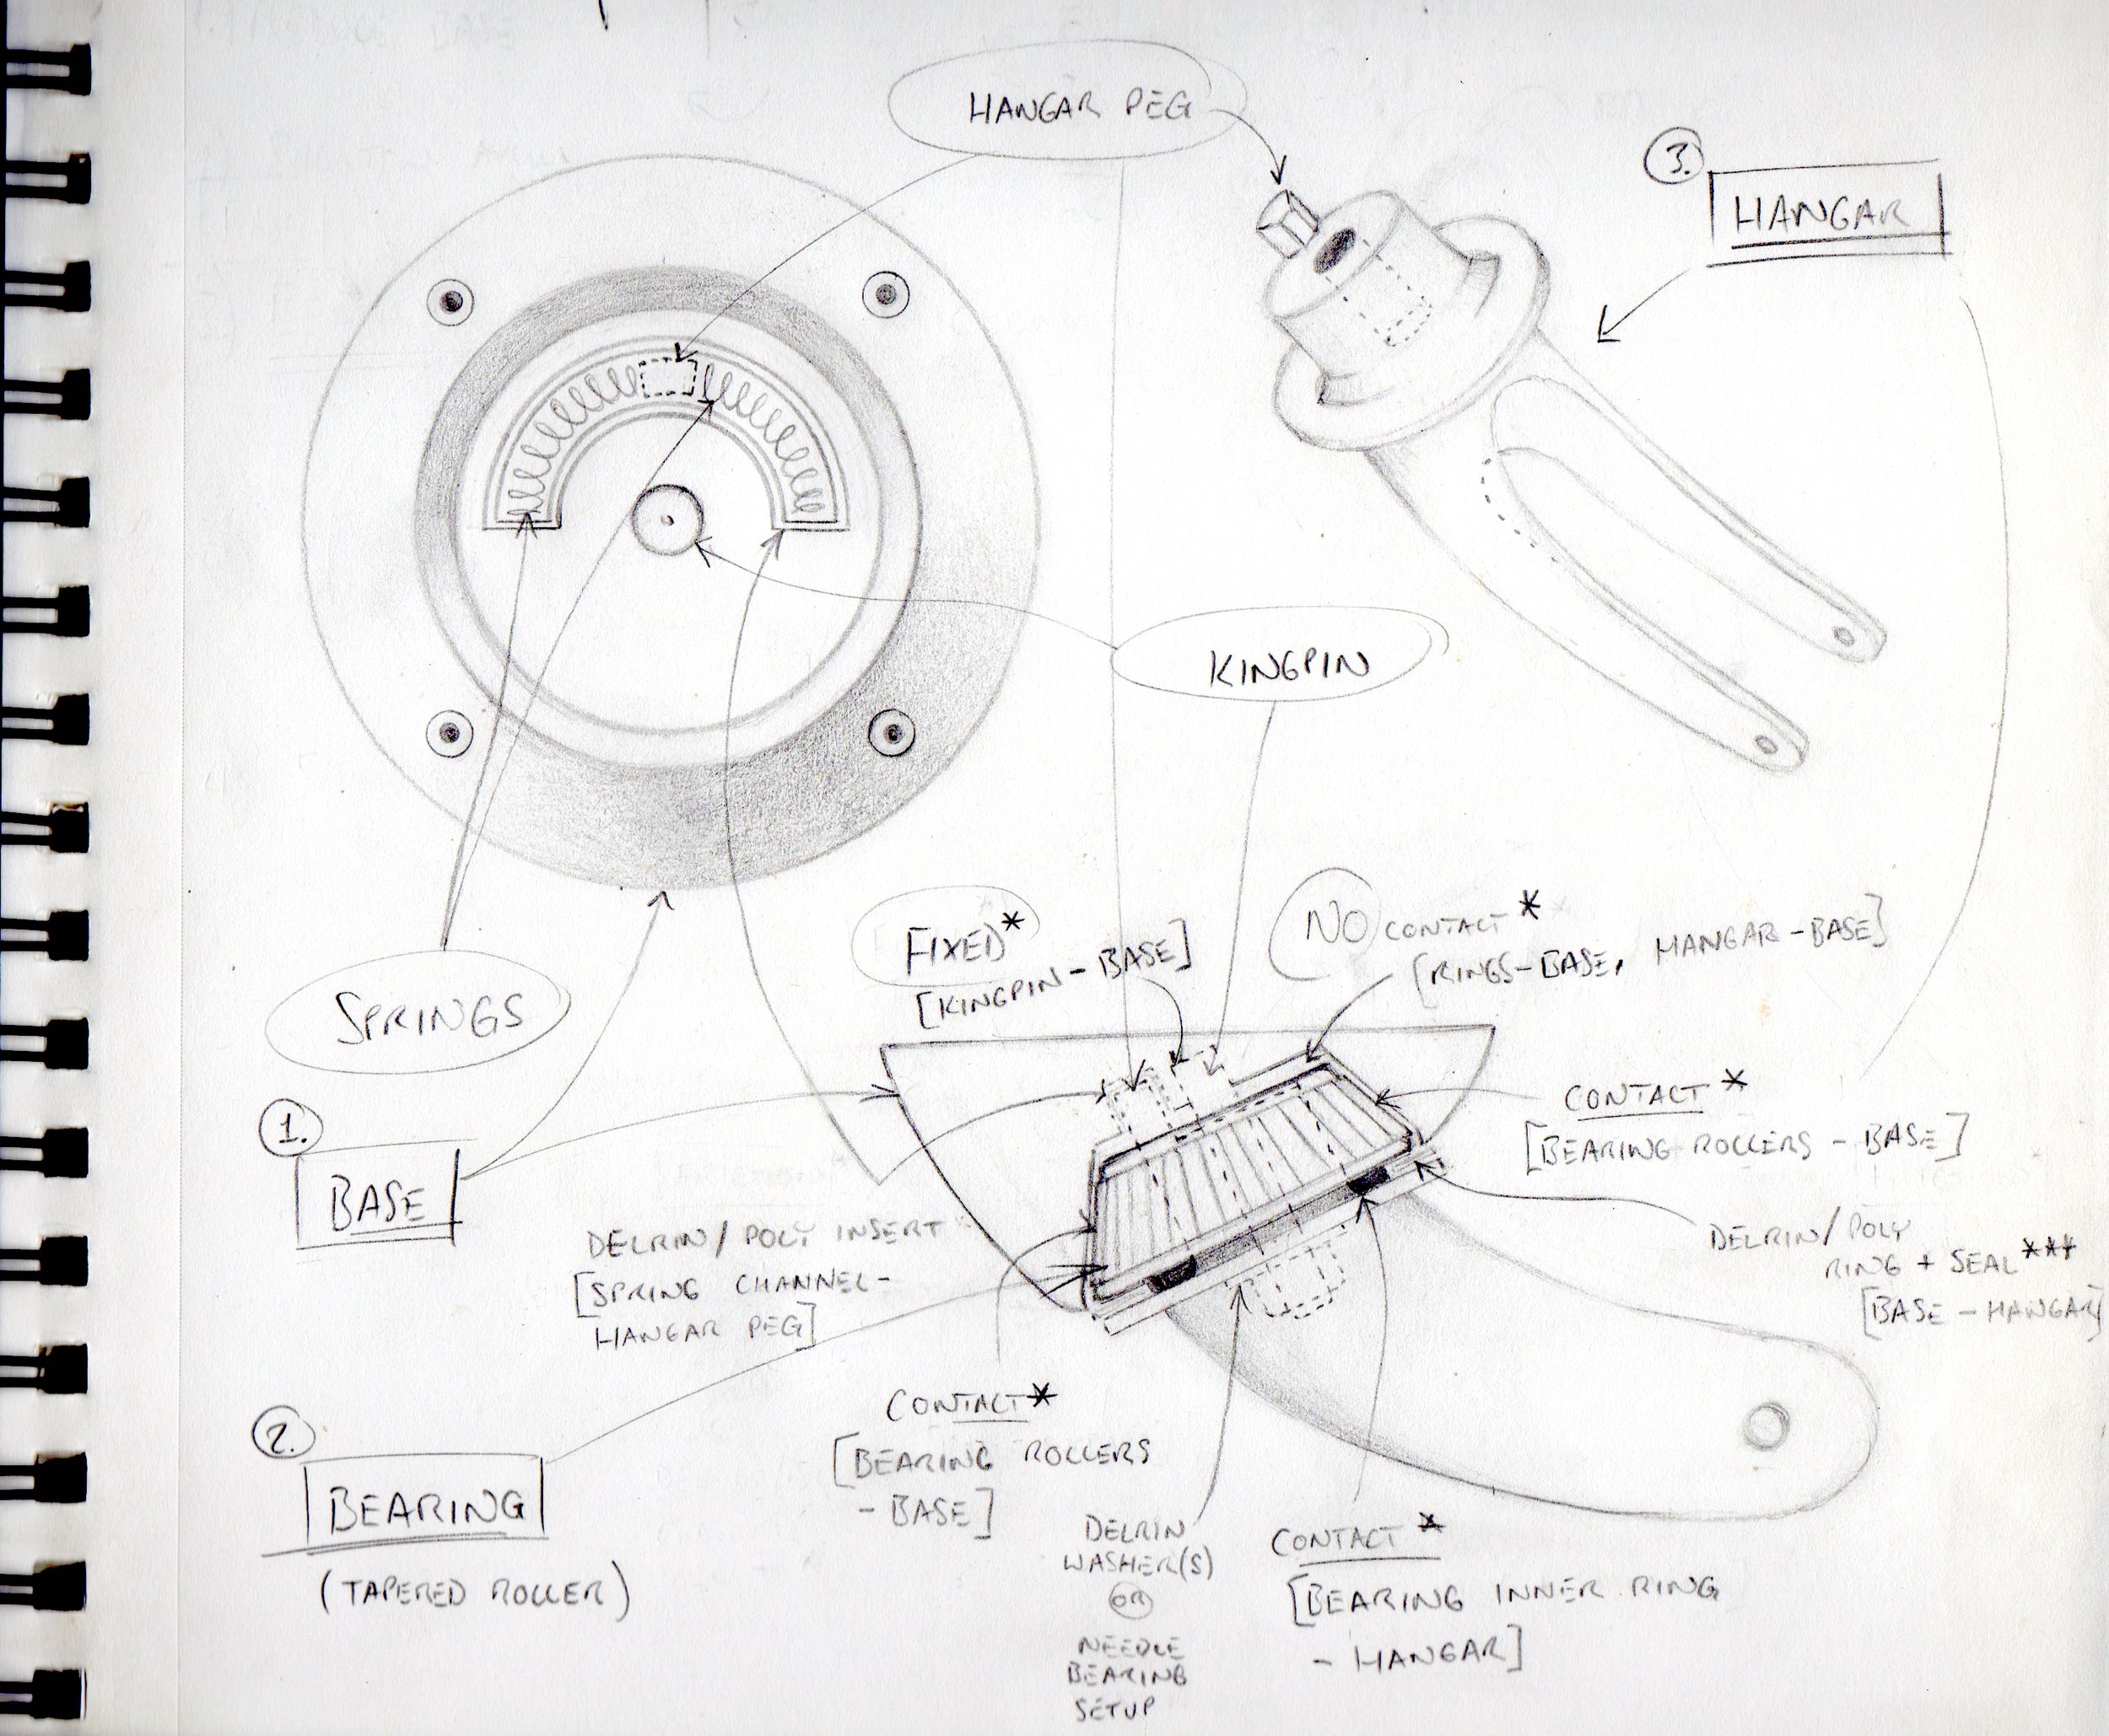 HANGAR PEG
3.
HANGAR
KINGPIN
SPRINGS
FIXED*
[KINGPIN - BASE]
NO CONTACT *
[RINGS - BASE, HANGAR - BASE]
1.
BASE
CONTACT *
[BEARING ROLLERS - BASE]
DELRIN / POLY INSERT
[SPRING CHANNEL -
HANGAR PEG]
DELRIN / POLY
RING + SEAL ***
[BASE - HANGAR]
2.
BEARING
(TAPERED ROLLER)
CONTACT *
[BEARING ROLLERS
- BASE]
DELRIN
WASHER(S)
OR
NEEDLE
BEARING
SETUP
CONTACT *
[BEARING INNER RING
- HANGAR]